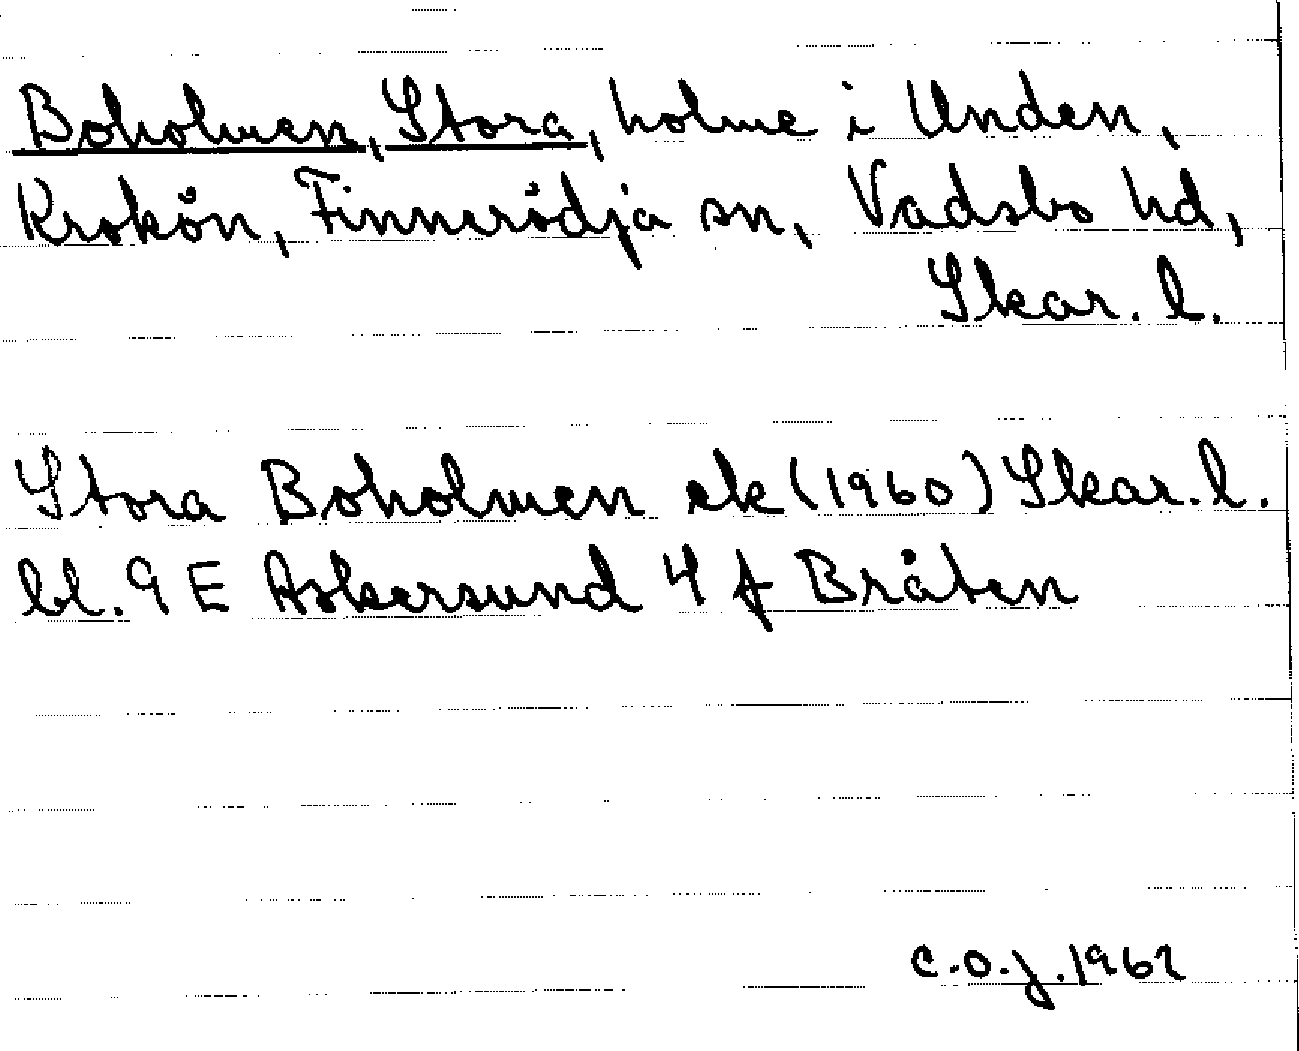 Boholmen, Stora, holme i Unden,
Krokön, Finnerödja sn, Vadsbo hd,
Skar. l.
Stora Boholmen ek (1960) Skar. l.
bl. 9 E Askersund 4 f Bråten
C.O.J. 1962